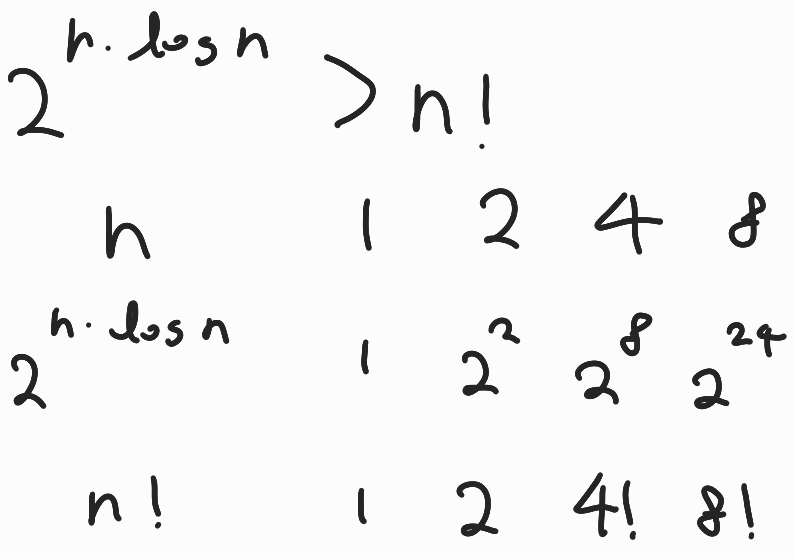 2^{n·log n} > n!
n 1 2 4 8
2^{n·log n} 1 2^2 2^8 2^{24}
n! 1 2 4! 8!